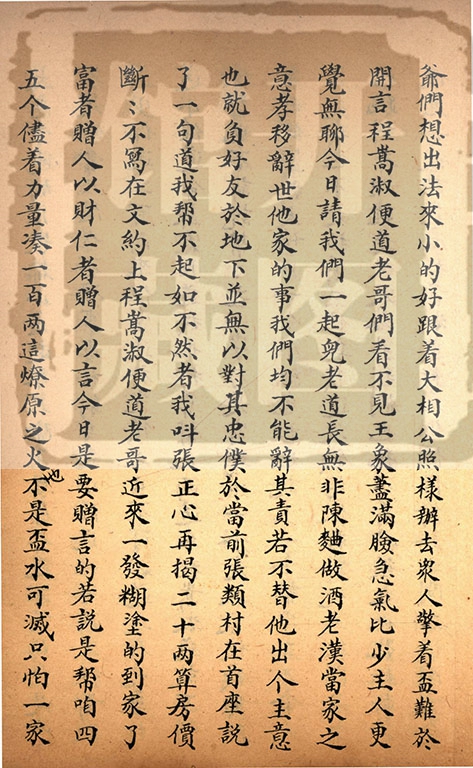 爺們想出法來小的好跟着大相公照樣辦去衆人擎着盃難於
開言程嵩淑便道老哥們看不見王象藎滿臉急氣比少主人更
覺無聊今日請我們一起兒老道長無非陳麯做酒老漢當家之
意孝移辭世他家的事我們均不能辭其責若不替他出个主意
也就負好友於地下並無以對其忠僕於當前張類村在首座說
了一句道我幫不起如不然者我呌張正心再揭二十两算房價
斷〻不寫在文約上程嵩淑便道老哥近來一發糊塗的到家了
富者贈人以財仁者贈人以言今日是要贈言的若說是幇咱四
五个儘着力量凑一百两這燎原之火也不是盃水可滅只怕一家